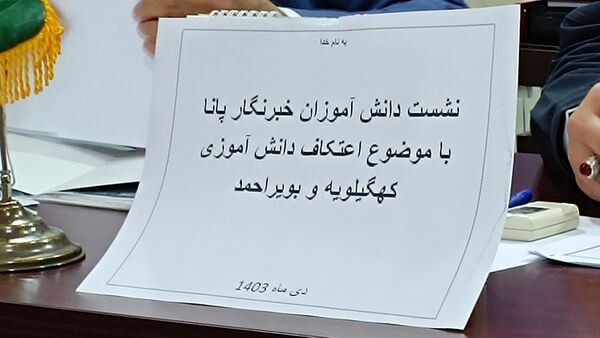 به نام خدا
نشست دانش آموزان خبرنگار پانا
با موضوع اعتکاف دانش آموزی
کهگیلویه و بویراحمد
دی ماه 1403